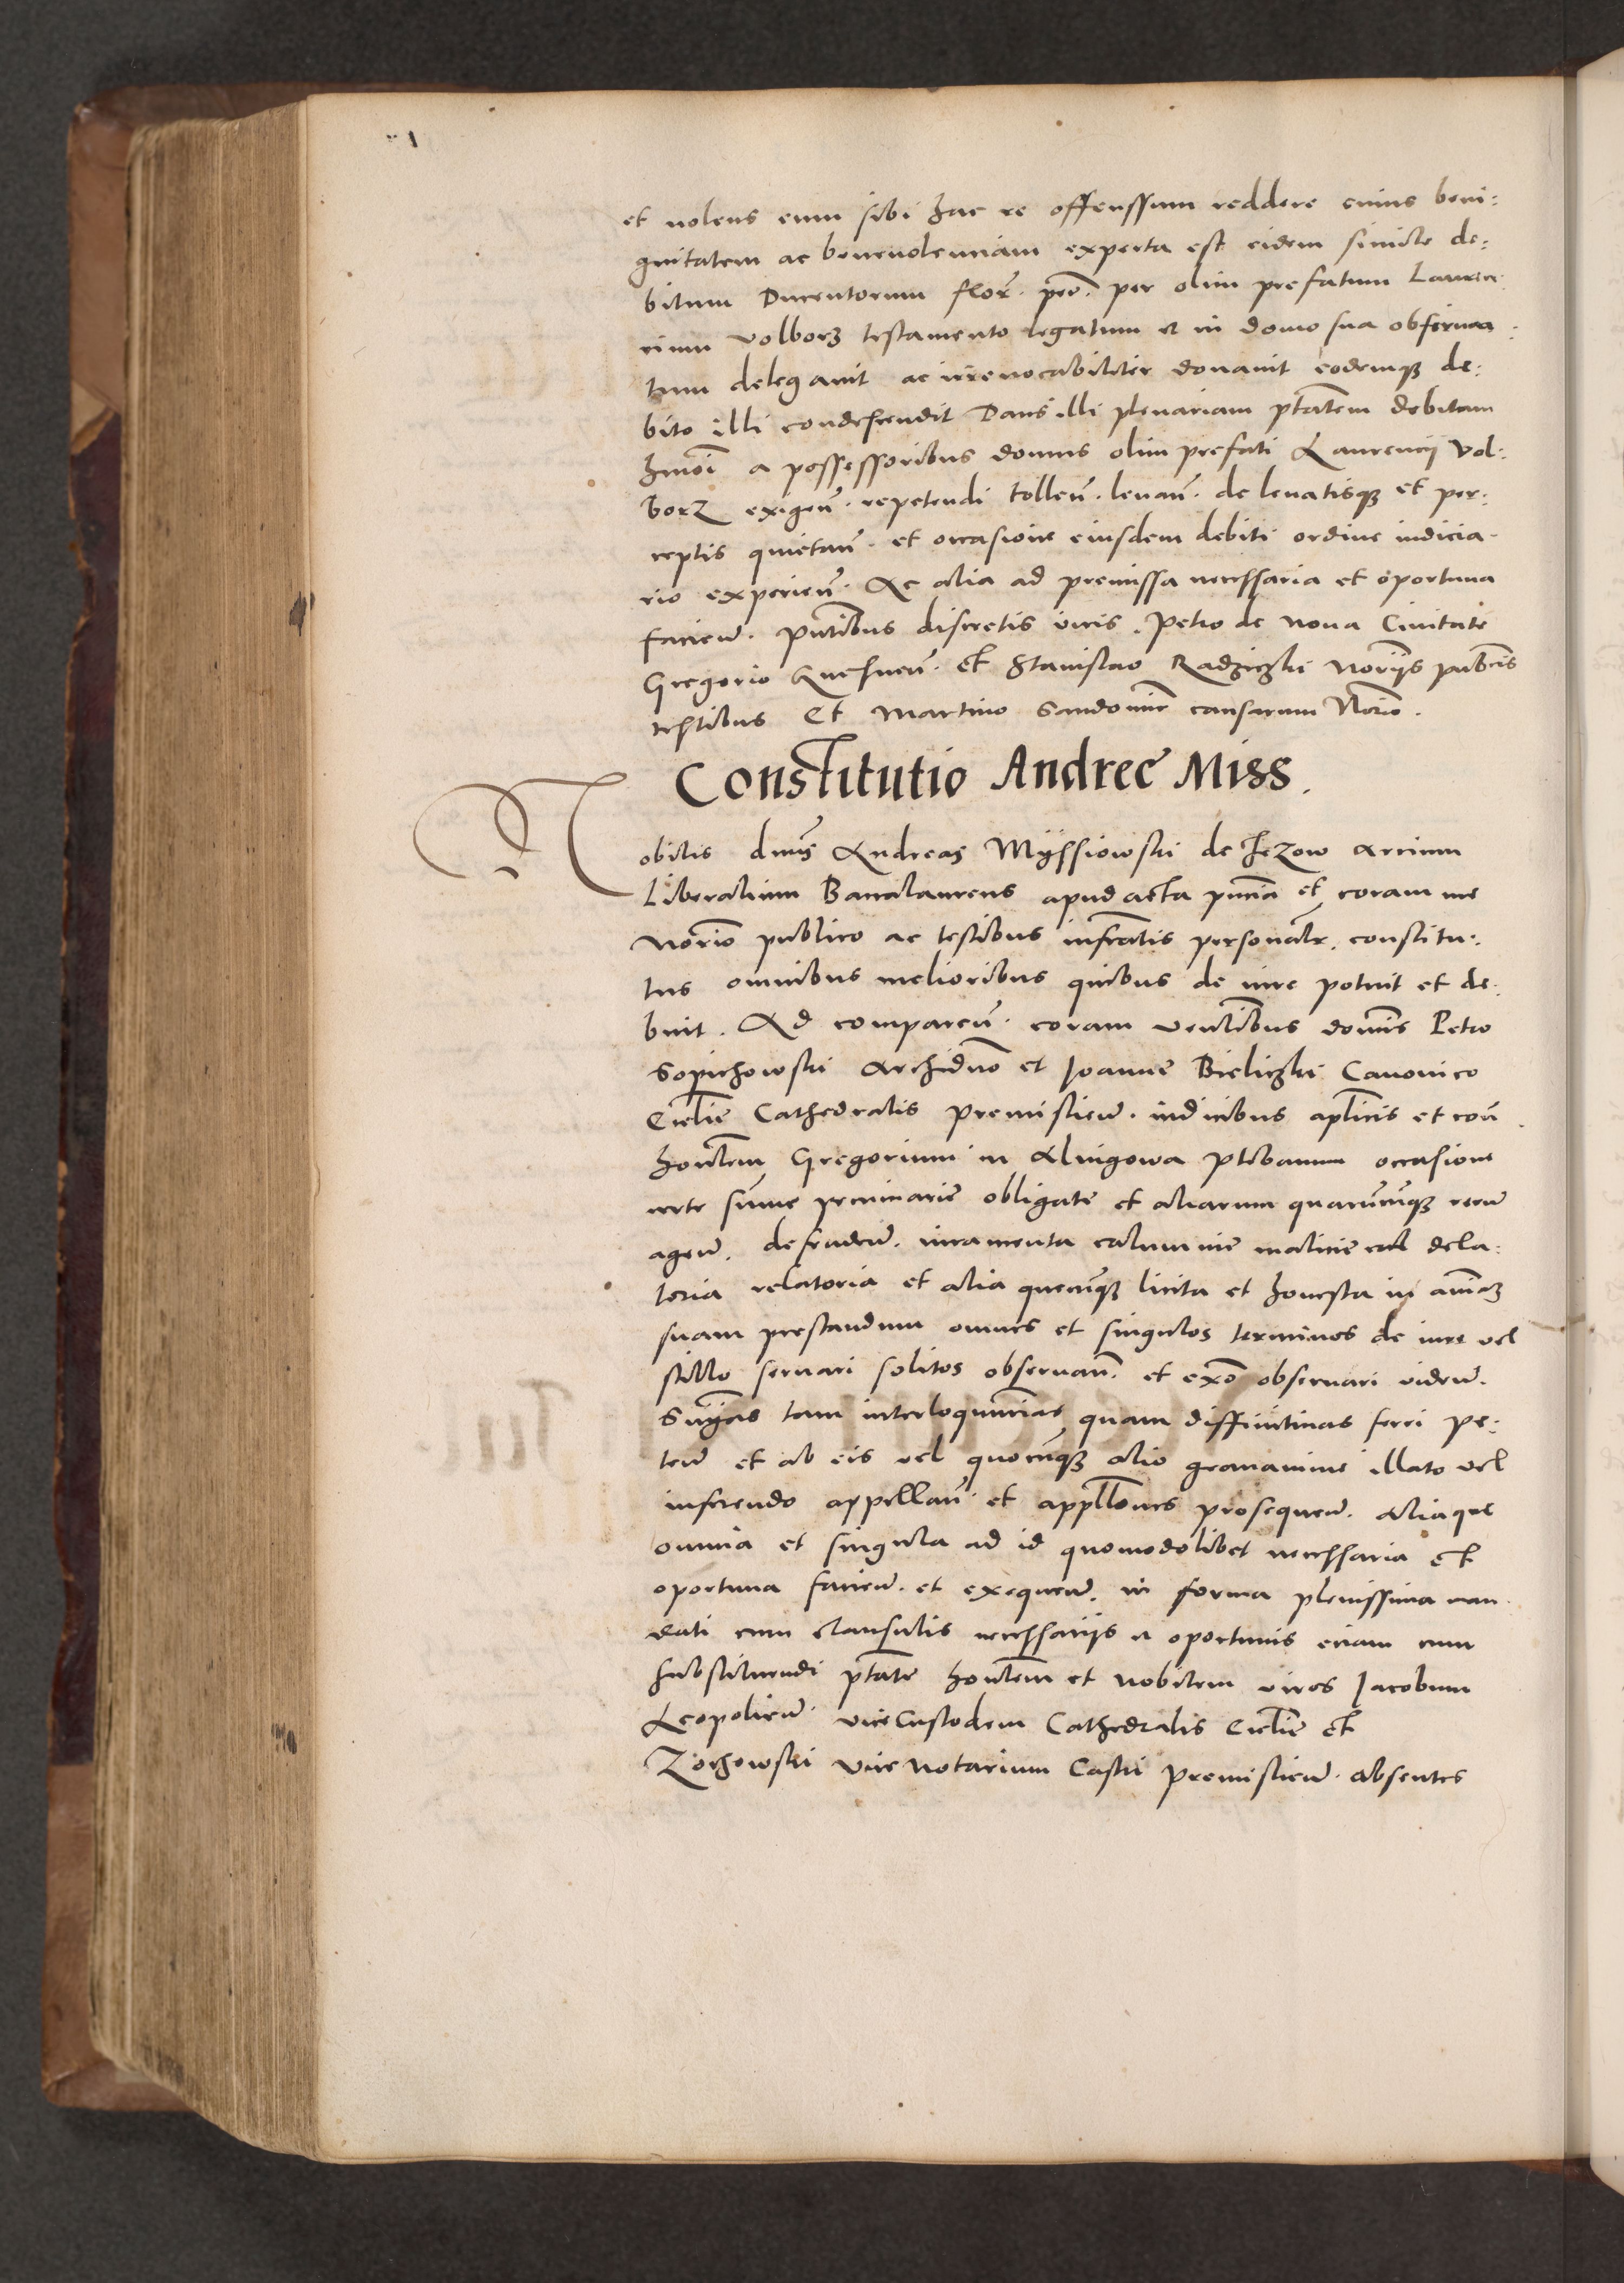 et nolens eum sibi hac re offenssum reddere cuius beni:
gnitatem ac beneuolenciam experta est eidem simile de:
bitum Ducentorum flor. per olim prefatum Lauren
cium Volborz testamento legatum et in domo sua obserua
tum delegauit ac irreuocabiliter donauit eodemq3 de:
bito illi condescendit Dans illi plenariam ptatem debitum
hmoi a possessoribus domus olim prefati Laurencij Vol:
borz exigen. repetendi tollen. leuan. de leuatisq3 et per:
ceptis quietan. et occasione eiusdem debiti ordine iudicia
rio experien. Ac alia ad premissa necessaria et oportuna
facien. Pntibus discretis viris. Petro de Noua Ciuitate
Gregorio et Stanislao Radziczki Norijs pubcis
testibus Et Martino Sandomir causarum Norio.
Constitutio Andree Miss.
Nobilis dnus Andreas Myssiowski de Jezow Arcium
Liberalium Baccalaureus apud acta pnia et coram me
Norio publico ac testibus infratis personalr. constitu:
tus omnibus melioribus quibus de iure potuit et de:
buit. Ad comparen. coram venlibus domnis Petro
Sopichowski Archidno et Joanne Bieliczki Canonico
Ecclie Cathedralis Premislien. iudicibus aplicis et con
honlem Gregorium in plebanum occasione
certe summe pecuniarie obligate et aliarum quarumcumq3 rerum
agen. defenden. iuramenta calumnie malicie dela:
toria relatoria et alia quecumq3 licita et honesta in aniam
suam prestandum omnes et singulos terminos de iure vel
stillo seruari solitos obseruan. et obseruari viden.
Snias tam interloqutorias quam diffinitiuas ferri pe:
ten et ab eis vel quocumq3 alio grauamine illato vel
inferendo appellan. et appllones prosequen. aliaque
omnia et singula ad id quomodolibet necessaria et
oportuna facien. et exequen. in forma plenissima man
dati cum clausulis necessarijs et oportunis eciam cum
substituendi ptate honlem et Nobilem viros Jacobum
Leopolien. viceCustodem Cathedralis Ecclie et
Zochowski Vice Notarium Castri Premislien. absentes